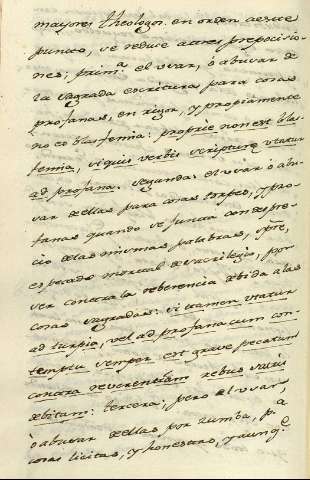 mayores theologos. en orden a este
punto, se reduce a tres preposicio-
nes; prim.ª el usar, ò abusar de
la sagrada escritura para cosas
profanas, en rigor, y propiamente
no es blasfemia: propriè non est blas-
femia, siquis verbis scripturæ utatur
ad profana. segunda: el usar ò abu-
sar de ellas para cosas torpes, y pro-
fanas quando se junta con despre-
cio de las mismas palabras, spre,
es pecado mortal de sacrilegio, por
ser contra la reberencia debida a las
cosas sagradas: si tamen utatur
ad turpia, vel ad profana cum con-
temptu semper est grave pecatum
contra reverentiam rebus sacris
debitam: tercera; pero el usar,
ò abusar de ellas por zumba, p.ª
cosas licitas, y honestas, y aunq.ᵉ